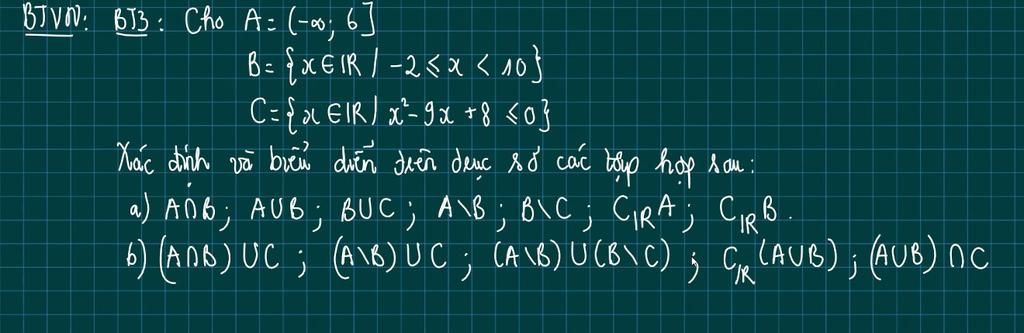 BTVN: BT3: Cho A = (-∞; 6]
B = {x ∈ IR / -2 ≤ x < 10}
C = {x ∈ IR / x² - 9x + 8 ≤ 0}
Xác định và biểu diễn trên trục số các tập hợp sau:
a) A∩B; A∪B; B∪C; A\B; B\C; C_IR A; C_IR B.
b) (A∩B)∪C; (A\B)∪C; (A\B)∪(B\C); C_IR (A∪B); (A∪B)∩C